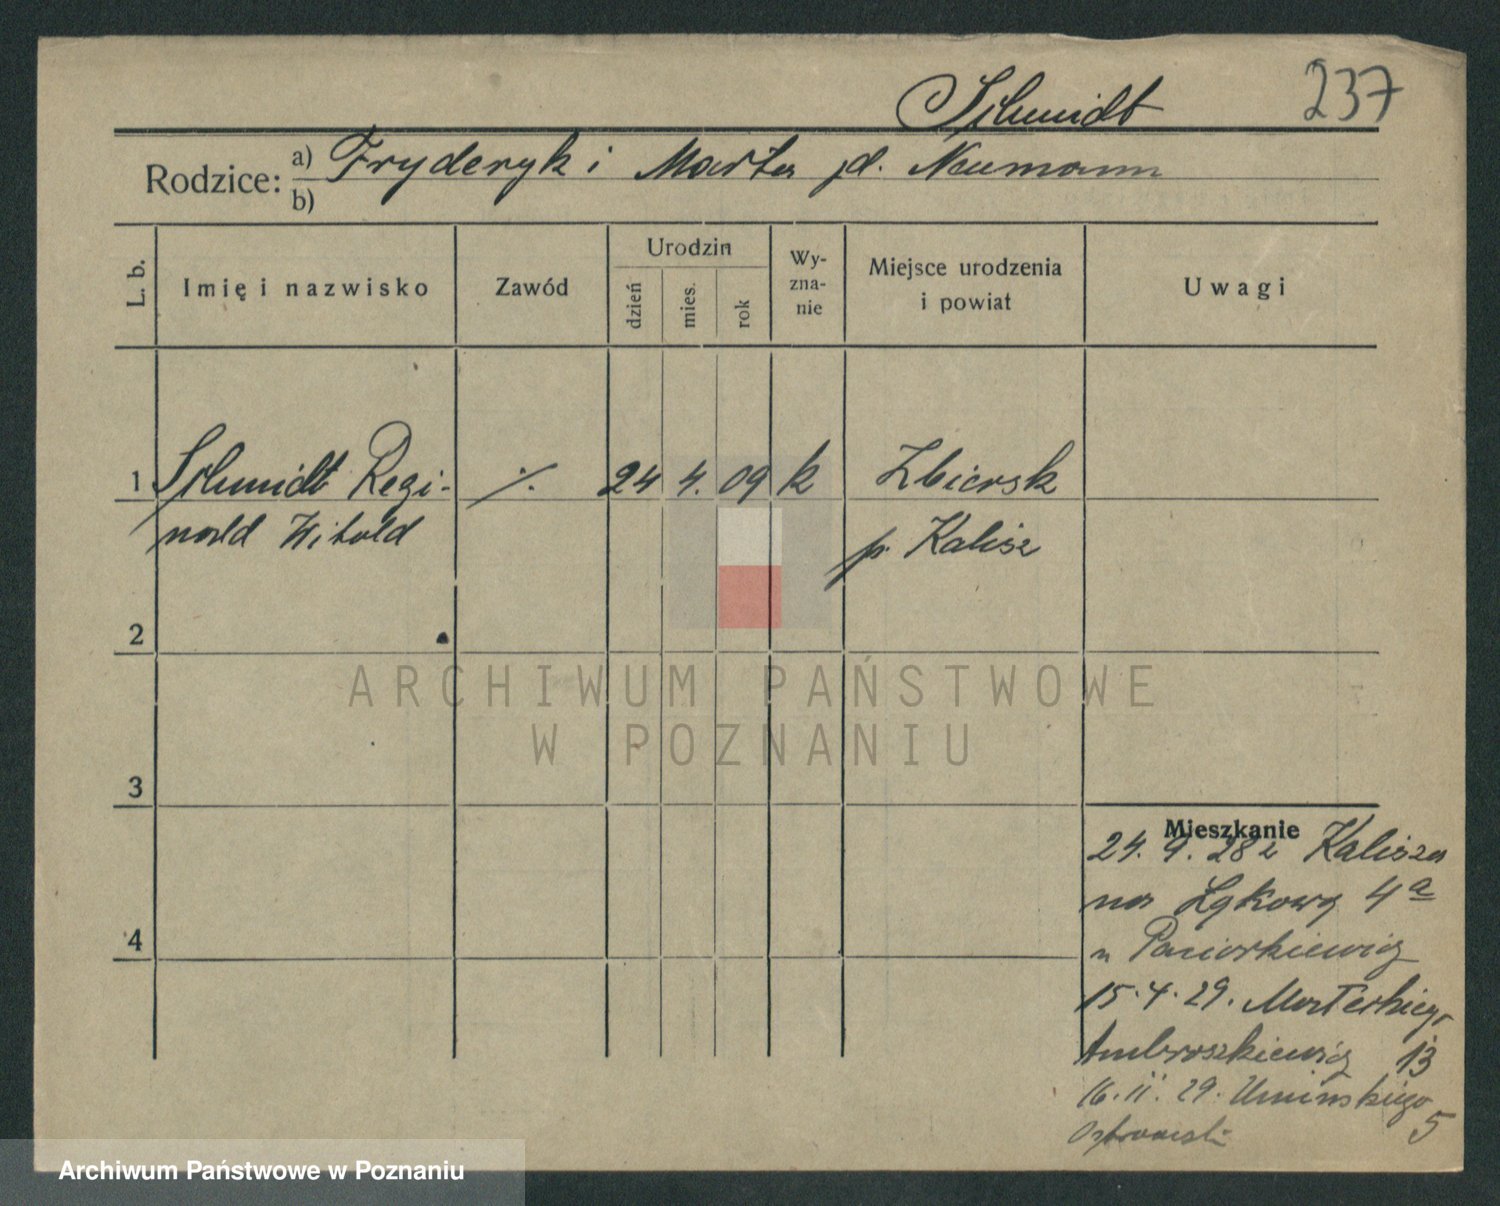 237
Schmidt
Rodzice: a) Fryderyk i Marta d. Neumann
b)
L. b.
Imię i nazwisko
Zawód
Urodzin
dzień
mies.
rok
Wy-
zna-
nie
Miejsce urodzenia
i powiat
Uwagi
1 Schmidt Regi- ⁒ 24 4. 09 k Zbiersk
nald Witold p. Kalisz
2
3
4
Mieszkanie
24. 9. 28 z Kalisza
na Łąkową 4a
u Paciorkiewicz
15.4.29.
Ambroszkiewicz 13
16.11.29. Umińskiego
5
ARCHIWUM PAŃSTWOWE
W POZNANIU
Archiwum Państwowe w Poznaniu